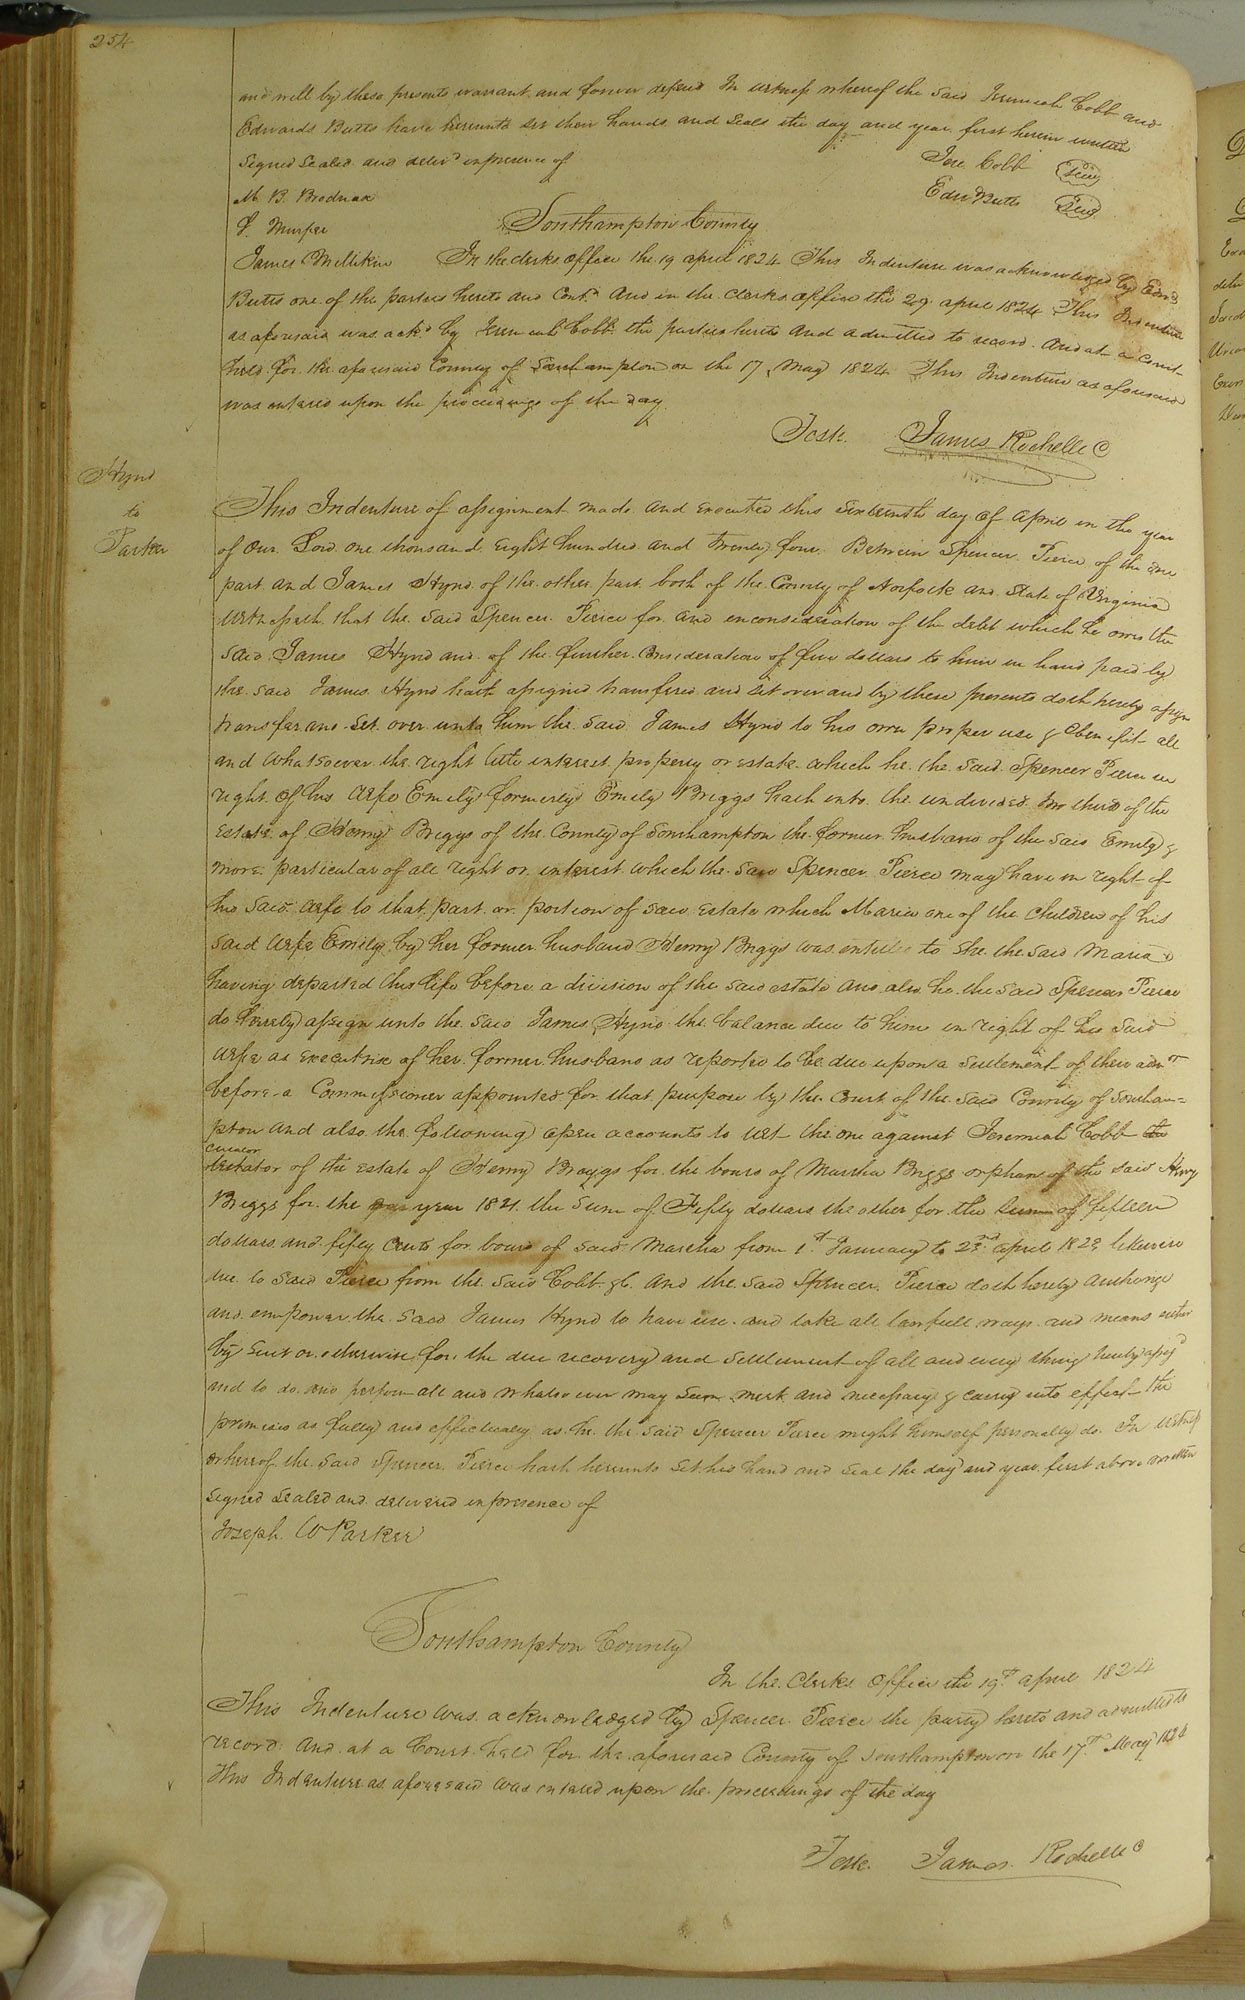 254
and will by these presents warrant and forever defend In witness whereof the said Jeremiah Cobb and
Edwards Butts have hereunto set their hands and seals the day and year first herein written
Signed Sealed and deliv'd in presence of
Jere Cobb Seal
M. B. Brodnax
Edw Butts Seal
Southampton County
James Millikin In the clerks office the 19 april 1824 This Indenture was acknowledged by Edw'd
Butts one of the parties hereto and Cont'd And in the clerks office the 29 april 1824 This Indenture
as aforesaid was ack'd by Jeremiah Cobb the parties hereto and admitted to record. And at a Court
held for the aforesaid County of Southampton on the 17 May 1824 This Indenture as aforesaid
was entered upon the proceedings of the day.
Teste. James Rochelle C
Hynd
to
Parker
This Indenture of assignment made and executed this Sixteenth day of april in the year
of Our Lord one thousand eight hundred and Twenty four Between Spencer Pierce of the one
part and James Hynd of the other part both of the County of Norfolk and State of Virginia
Witnesseth that the said Spencer Pierce for and in consideration of the debt which he owes the
said James Hynd and of the further consideration of five dollars to him in hand paid by
the said James Hynd hath assigned transfered and set over and by these presents doth hereby assign
transfer and set over unto him the said James Hynd to his own proper use & benefit all
and whatsoever the right title interest property or estate which he the said Spencer Pierce in
right of his wife Emily formerly Emily Briggs hath into the undivided two thirds of the
estate of Henry Briggs of the County of Southampton the former husband of the said Emily &
more particular of all right or interest which the said Spencer Pierce may have in right of
his said wife to that part or portion of said estate which Maria one of the children of his
said wife Emily by her former husband Henry Briggs was entitled to She the said Maria
having departed this life before a division of the said estate and also he the said Spencer Pierce
do hereby assign unto the said James Hynd the balance due to him in right of his said
wife as executrix of her former husband as reported to be due upon a settlement of their adm'n
before a Commissioner appointed for that purpose by the Court of the said County of Southam=
pton and also the following open accounts to wit the one against Jeremiah Cobb the
curator
testator of the estate of Henry Briggs for the board of Martha Briggs orphan of the said Henry
Briggs for the year 1821 the sum of Fifty dollars the other for the sum of fifteen
dollars and fifty Cents for board of said Martha from 1st January to 23rd april 1822 likewise
due to said Pierce from the said Cobb &c And the said Spencer Pierce doth hereby authorize
and empower the said James Hynd to have use and take all lawfull ways and means either
by Suit or otherwise for the due recovery and settlement of all and every thing hereby assig
ned to do and perform all and whatsoever may seem meet and necessary & carry into effect the
premises as fully and effectually as he the said Spencer Pierce might himself personally do. In witness
whereof the said Spencer Pierce hath hereunto set his hand and seal the day and year first above written
Signed Sealed and delivered in presence of
Joseph W Parker
Southampton County
In the Clerks Office the 19th april 1824
This Indenture was acknowledged by Spencer Pierce the party hereto and admitted to
record And at a Court held for the aforesaid County of Southampton on the 17th May 1824
This Indenture as aforesaid was entered upon the proceedings of the day
Teste. James Rochelle C